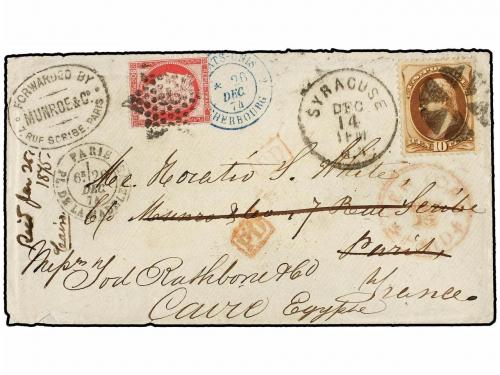 FORWARDED BY
MUNROE & Co
7 RUE SCRIBE. PARIS
ETATS-UNIS
* 26
DEC
74
CHERBOURG
SYRACUSE
DEC
14
1 PM
10
PARIS
6E 26
DEC
74
PL. DE LA MADELEINE
Recd Jan 25/
1875
Cairo
PD
PD
Mr. Horatio S. White
C/o Munroe & Co 7 Rue Scribe
Paris
France
Messrs Tod Rathbone & Co
Cairo Egypte